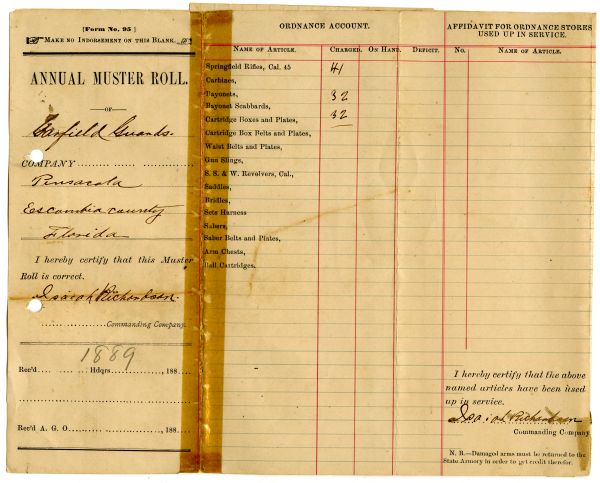 [Form No. 95]
MAKE NO INDORSEMENT ON THIS BLANK.
ANNUAL MUSTER ROLL.
OF
Garfield Guards.
COMPANY
Pensacola
Escambia county
Florida
I hereby certify that this Muster
Roll is correct.
Isaiah Richardson.
Commanding Company.
1889
Rec'd Hdqrs. , 188
Rec'd A. G. O , 188
ORDNANCE ACCOUNT.
NAME OF ARTICLE. CHARGED. ON HAND. DEFICIT.
Springfield Rifles, Cal. 45 41
Carbines,
Bayonets, 32
Bayonet Scabbards,
Cartridge Boxes and Plates, 32
Cartridge Box Belts and Plates,
Waist Belts and Plates,
Gun Slings,
S. S. & W. Revolvers, Cal.,
Saddles,
Bridles,
Sets Harness
Sabers,
Saber Belts and Plates,
Arm Chests,
Ball Cartridges.
AFFIDAVIT FOR ORDNANCE STORES
USED UP IN SERVICE.
No. NAME OF ARTICLE.
I hereby certify that the above
named articles have been used
up in service.
Isaiah Richardson
Commanding Company
N. B.—Damaged arms must be returned to the
State Armory in order to get credit therefor.